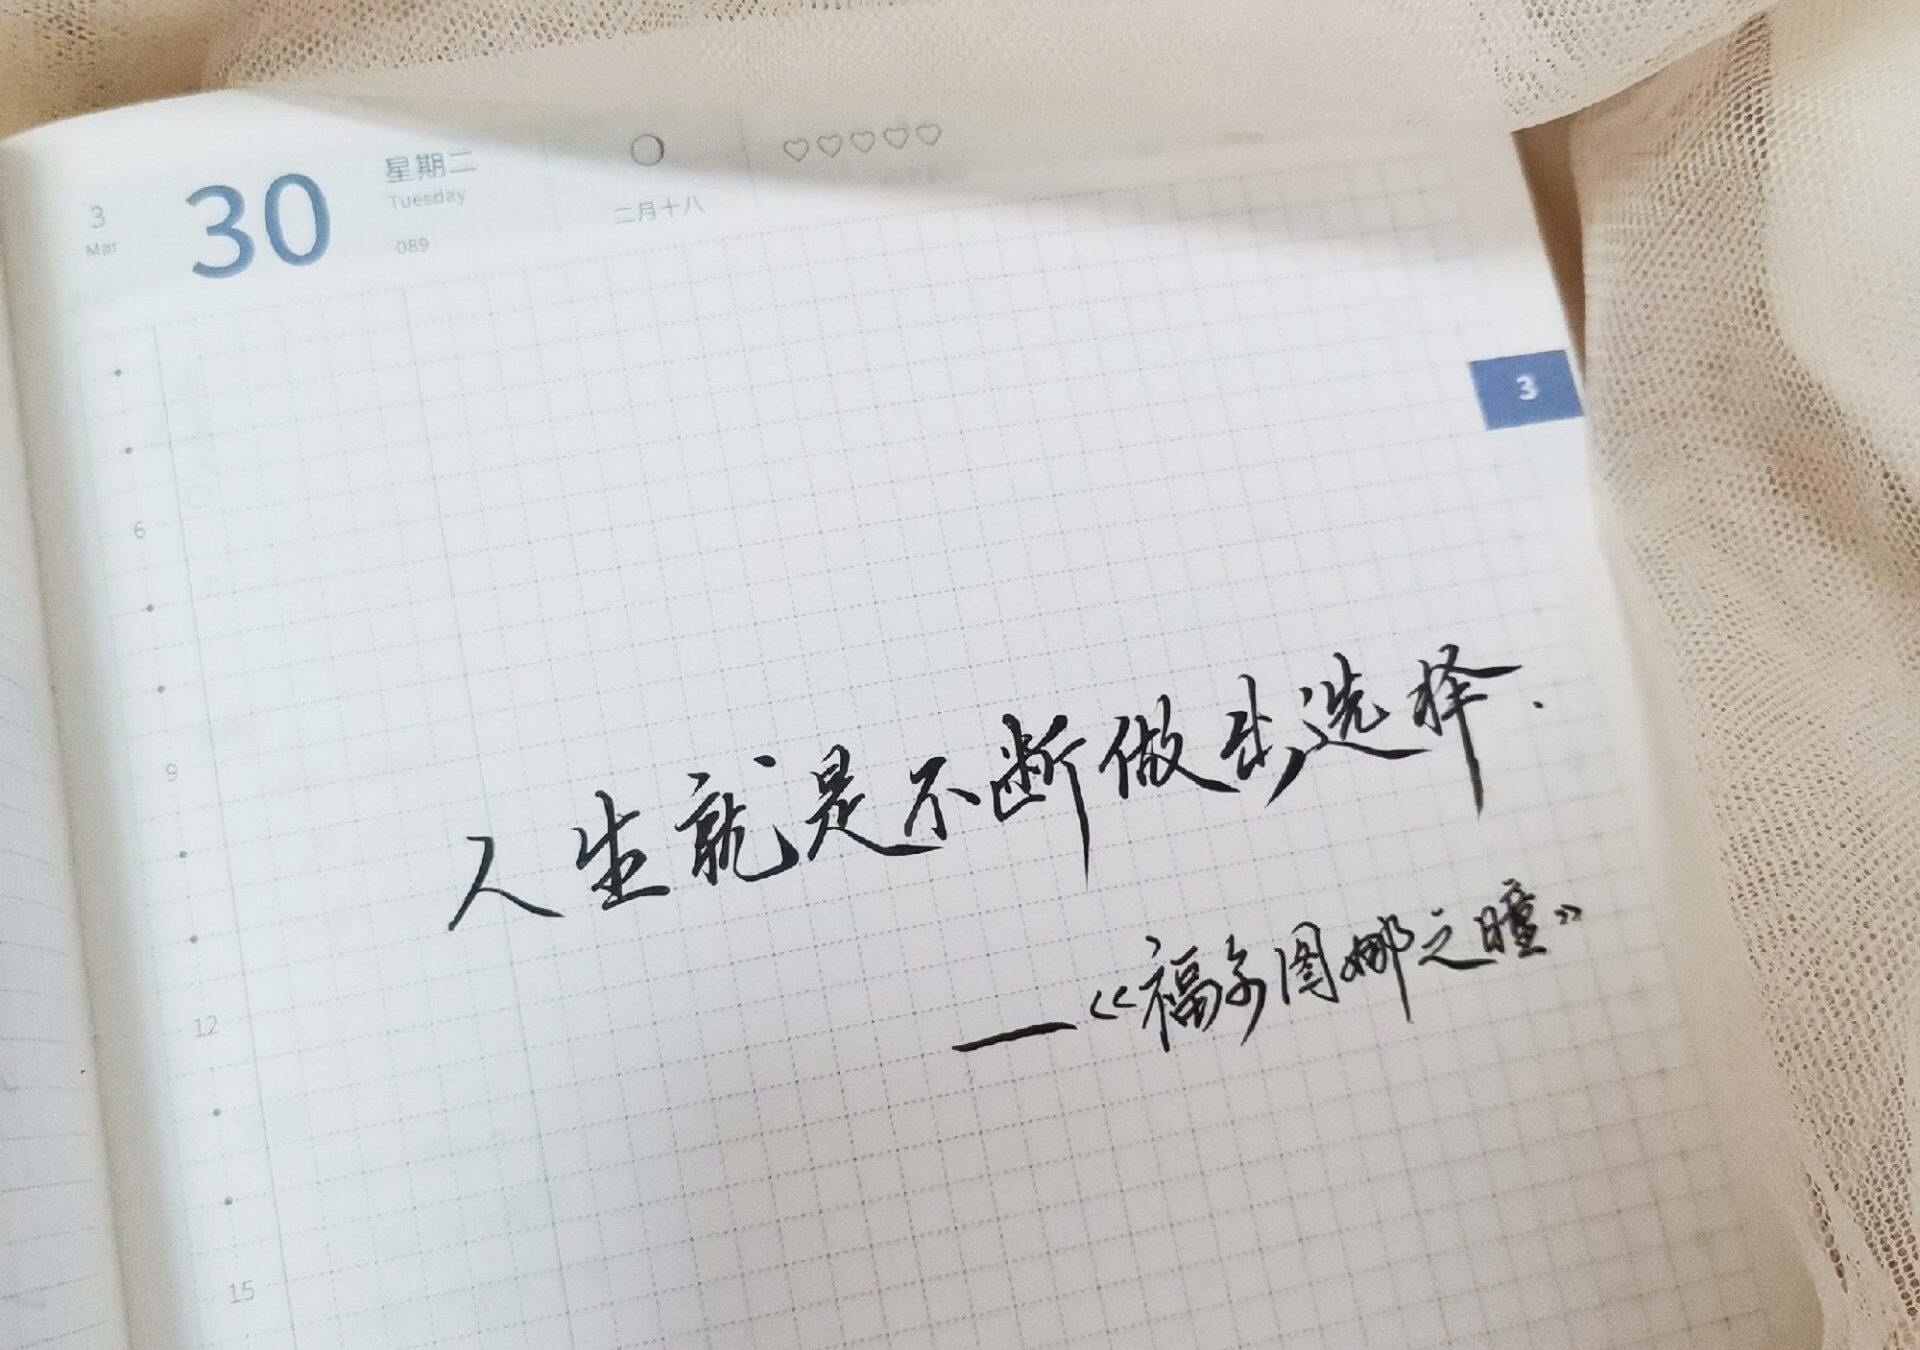 3
Mar
30
星期二
Tuesday
089
二月十八
3
6
9
人生就是不断做出选择.
——《福尔图娜之瞳》
12
15